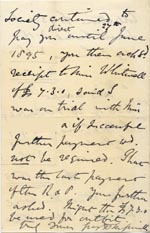 Society continued to
pay you until June
1895, you then asked
receipt to Miss
of £7.3.0, said I
was on trial with him
& if successful
further payment wd.
not be required. That
was the last payment
of the R & P. You further
asked. Might the £7.3.0
be used for outfit
but